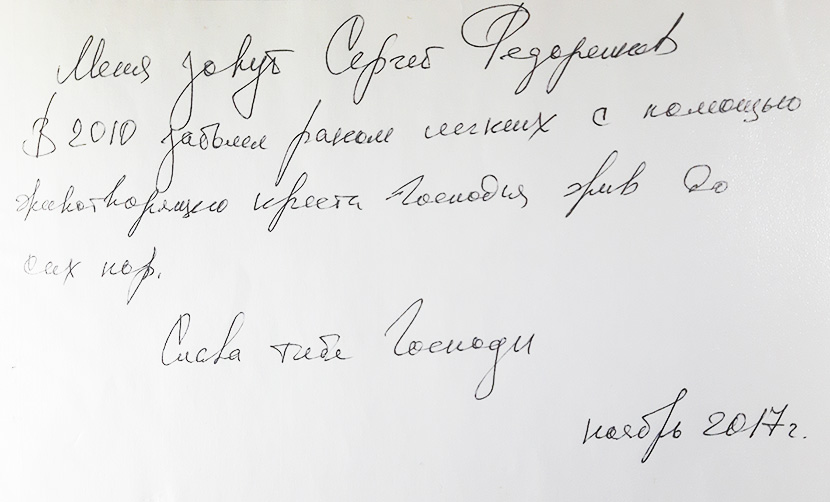 Меня зовут Сергей Федоренков
В 2010 заболел раком легких с помощью
животворящего креста Господня жив до
сих пор.
Слава тебе Господи
ноябрь 2017г.